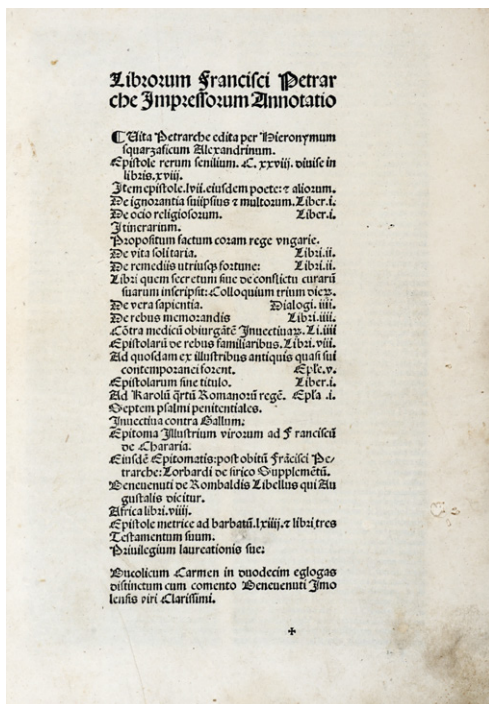 Librorum Francisci Petrar
che Impressorum Annotatio
¶ Vita Petrarche edita per Hieronymum
squarzaficum Alexandrinum.
Epistole rerum senilium. C. xxviij. diuise in
libris.xviij.
Item epistole.lvij.eiusdem poete: ⁊ aliorum.
De ignorantia suiipsius ⁊ multorum. Liber.i.
De ocio religiosorum. Liber.i.
Itinerarium.
Propositum factum coram rege vngarie.
De vita solitaria. Libri.ii.
De remediis vtriusqꝫ fortune: Libri.ii.
Libri quem secretum siue de conflictu curarū
suarum inscripsit: Colloquium trium dieꝝ.
De vera sapientia. Dialogi. iiij.
De rebus memorandis Libri.iiij.
Cōtra medicū obiurgātē Inuectiuaꝝ. Li.iiij
Epistolarū de rebus familiaribus. Libri. viij.
Ad quosdam ex illustribus antiquis quasi sui
contemporanei forent. Eple.v.
Epistolarum sine titulo. Liber.i.
Ad Karolū qrtū Romanorū regē. Epla .i.
Septem psalmi penitentiales.
Inuectiua contra Gallum:
Epitoma Illustrium virorum ad Franciscū
de Chararia:
Eiusdē Epitomatis: post obitū Frācisci Pe-
trarche: Lombardi de sirico Supplemētū.
Beneuenuti de Rombaldis Libellus qui Au
gustalis dicitur.
Africa libri. viiij.
Epistole metrice ad barbatū.lxiiij.⁊ libri tres
Testamentum suum.
Priuilegium laureationis sue:
Bucolicum Carmen in duodecim eglogas
distinctum cum comento Beneuenuti Imo
lensis viri Clarissimi.
✠